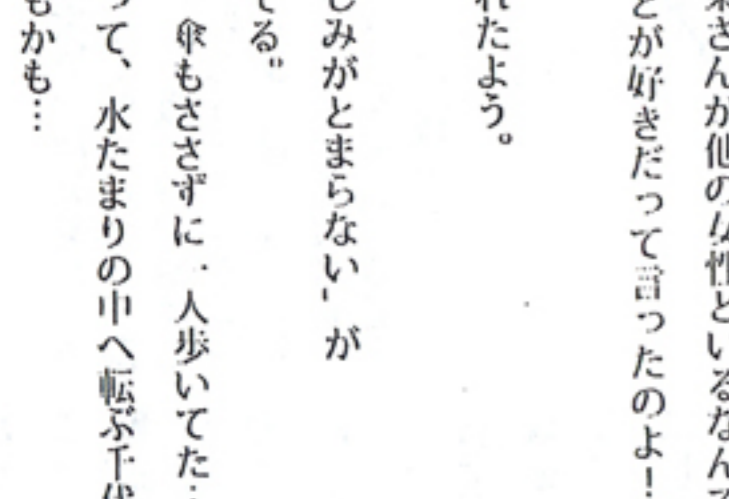 さんが他の女性といるなんて
とが好きだって言ったのよ！
れたよう。
しみがとまらない」が
てる。"
傘もささずに一人歩いてた…
って、水たまりの中へ転ぶ千代
もかも…